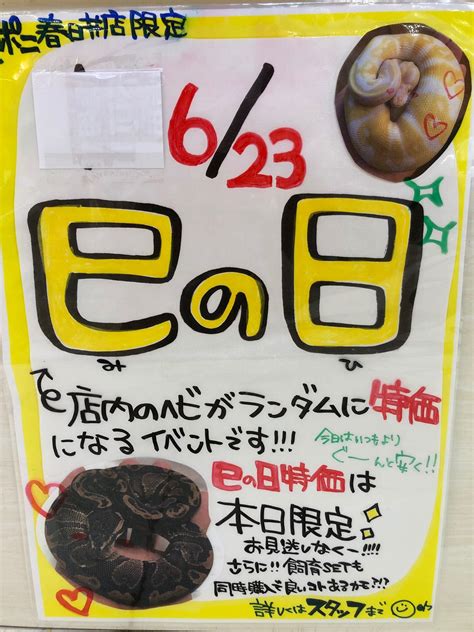 ポニー春日井店限定
6/23
巳の日
み ひ
店内のヘビがランダムに特価
になるイベントです!!!
今日はいつもより
ぐーんと安く!!
巳の日特価は
本日限定
お見逃しなくー!!!!
さらに!!飼育SETも
同時購入も良いコトあるかも?!?
詳しくはスタッフまで